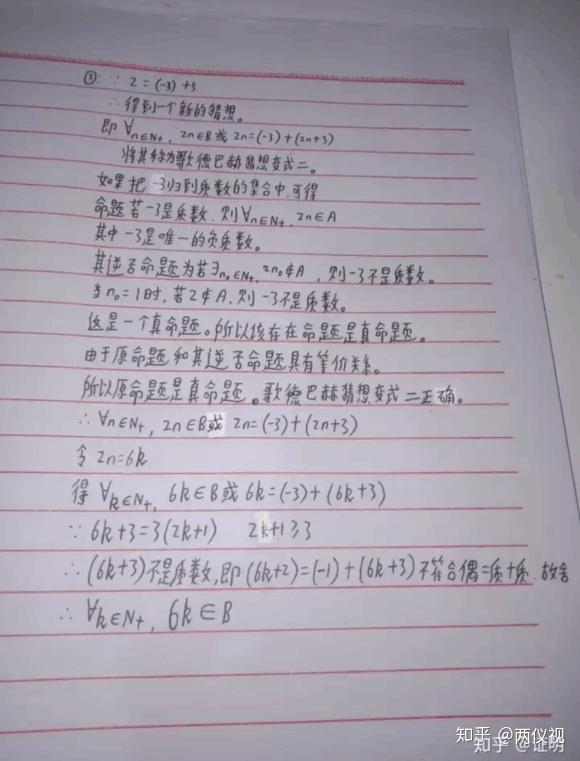 ①: ∵ 2=(-3)+5
∴得到一个新的猜想。
即 ∀n∈N+, 2n∈B或 2n=(-3)+(2n+3)
将其称为歌德巴赫猜想变式二。
如果把 -3归到质数的集合中,可得
命题若-3是质数,则∀n∈N+, 2n∈A
其中-3是唯一的负质数。
其逆否命题为若∃n₀∈N+, 2n₀∉A, 则-3不是质数。
当n₀=1时,若2∉A,则-3不是质数。
这是一个真命题。所以该存在命题是真命题。
由于原命题和其逆否命题具有等价关系。
所以原命题是真命题。歌德巴赫猜想变式二正确。
∴ ∀n∈N+, 2n∈B或 2n=(-3)+(2n+3)
令 2n=6k
得 ∀k∈N+, 6k∈B或 6k=(-3)+(6k+3)
∵ 6k+3=3(2k+1) 2k+1≥3
∴ (6k+3)不是质数,即(6k+2)=(-1)+(6k+3)不符合偶=质+质,故舍
∴ ∀k∈N+, 6k∈B
知乎 @两仪视
知乎 @证明